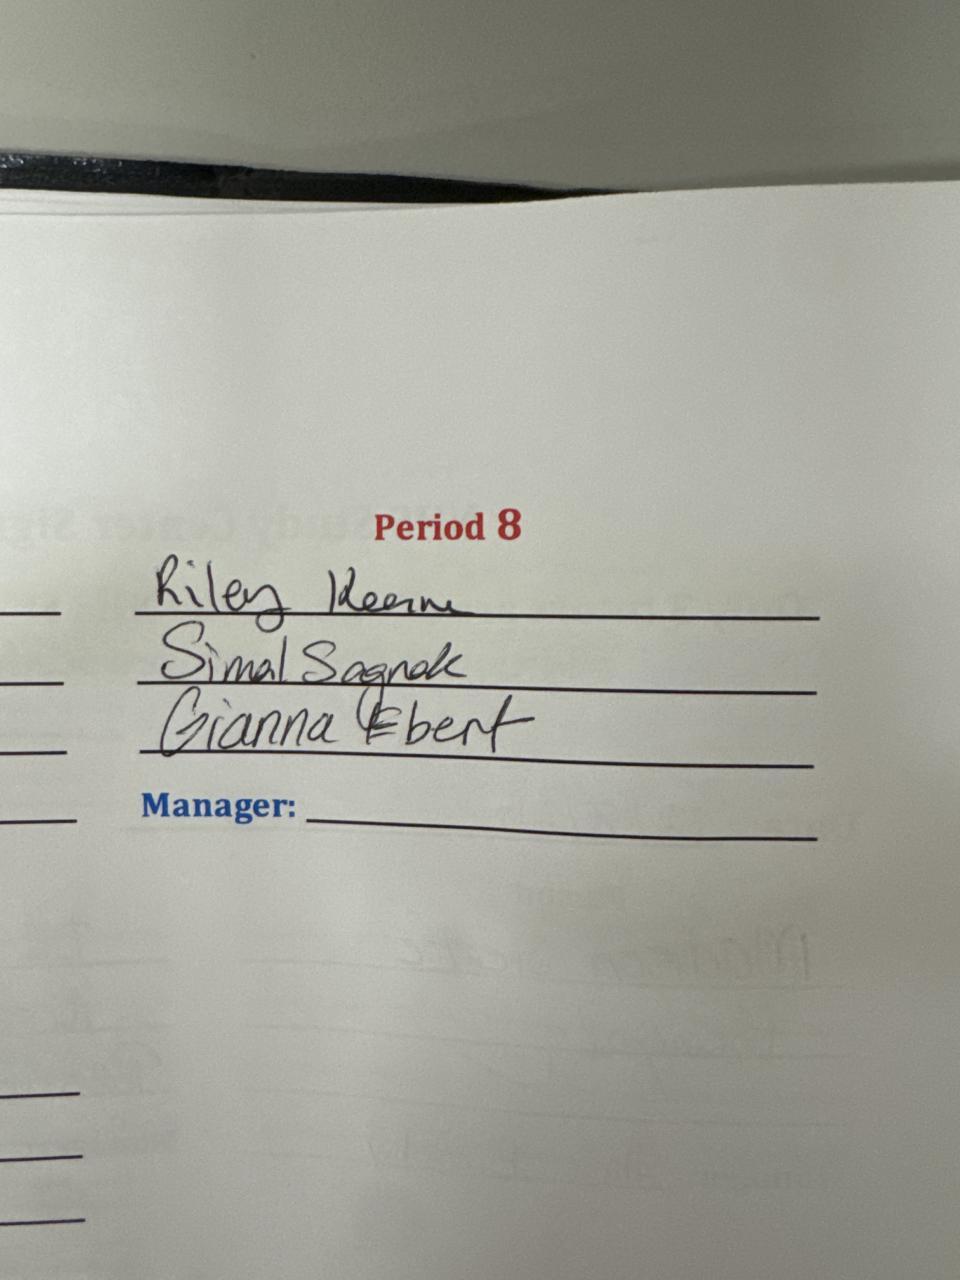 Period 8
Riley Keerne
Simal Sagnak
Gianna Ebert
Manager: